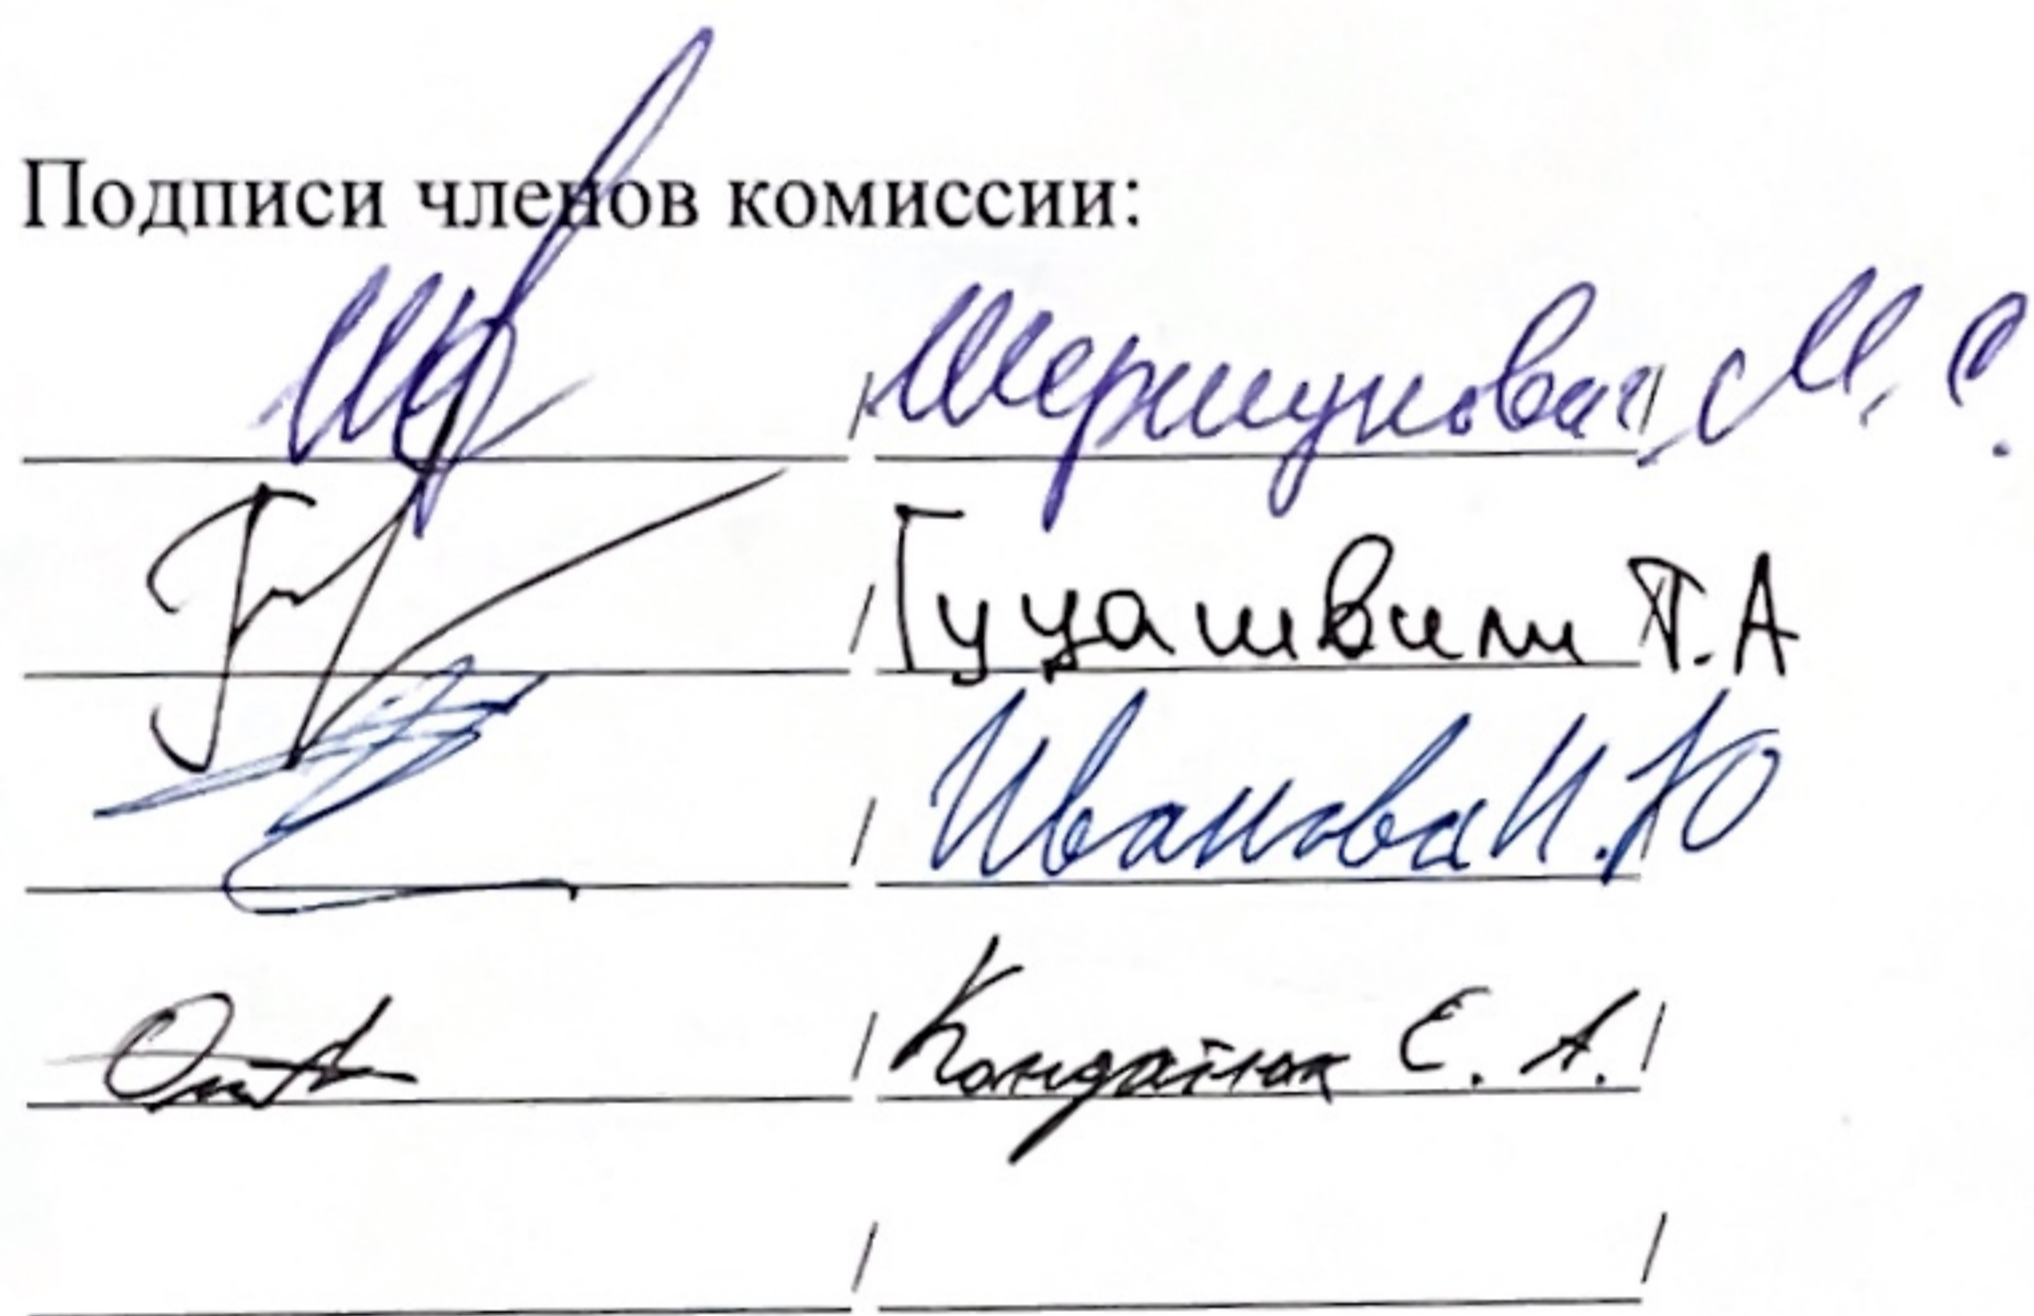 Подписи членов комиссии:
/Шершукова/ М. С.
/Гуцашвили Т.А
/Иванова И.Ю
/Кондайчак Е. А./
/ /